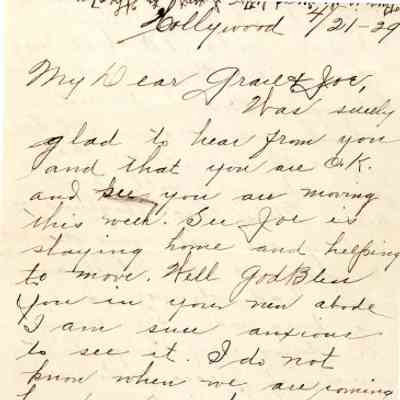 Hollywood 4/21-29
My Dear Grace & Joe,
Was surely
glad to hear from you
and that you are O.K.
and see you are moving
this week. See Joe is
staying home and helping
to move. Well God Bless
you in your new abode
I am sure anxious
to see it. I do not
know when we are coming